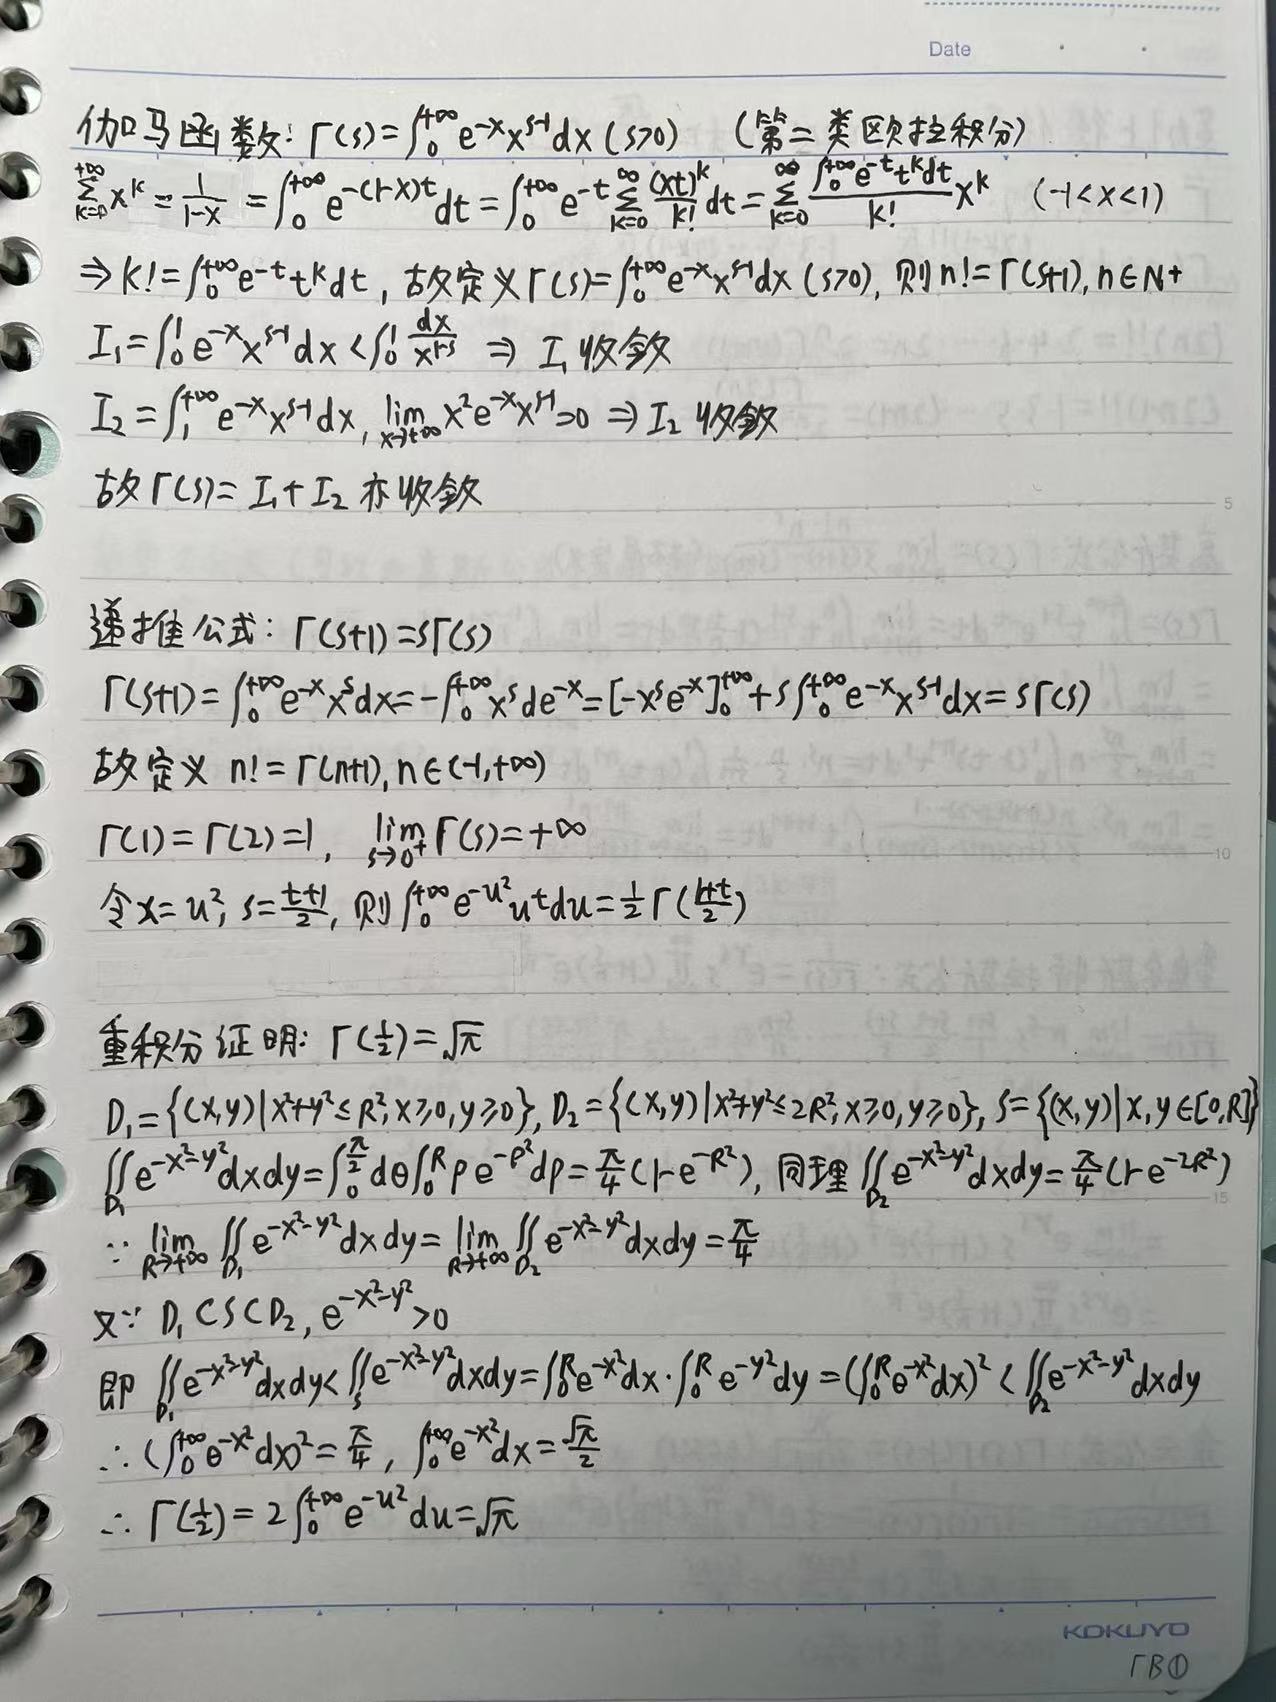 Date
伽马函数: Γ(s)=∫₀^{+∞} e^{-x}x^{s-1}dx (s>0) (第二类欧拉积分)
∑_{k=0}^{+∞} x^k = 1/(1-x) = ∫₀^{+∞} e^{-(1-x)t}dt = ∫₀^{+∞} e^{-t} ∑_{k=0}^{∞} (xt)^k/k! dt = ∑_{k=0}^{∞} (∫₀^{+∞} e^{-t}t^k dt)/k! x^k (-1<x<1)
⇒ k! = ∫₀^{+∞} e^{-t} t^k dt, 故定义Γ(s)=∫₀^{+∞} e^{-x}x^{s-1}dx (s>0), 则n!=Γ(s+1), n∈N+
I₁=∫₀¹ e^{-x}x^{s-1}dx < ∫₀¹ dx/x^{1-s} ⇒ I₁收敛
I₂=∫₁^{+∞} e^{-x}x^{s-1}dx, lim_{x→+∞} x²e^{-x}x^{s-1}=0 ⇒ I₂ 收敛
故Γ(s)= I₁+I₂ 亦收敛
5
递推公式: Γ(s+1)=sΓ(s)
Γ(s+1)=∫₀^{+∞} e^{-x}x^s dx=-∫₀^{+∞} x^s de^{-x}=[-x^s e^{-x}]₀^{+∞}+s∫₀^{+∞} e^{-x}x^{s-1}dx=sΓ(s)
故定义 n!=Γ(n+1), n∈(-1,+∞)
Γ(1)=Γ(2)=1, lim_{s→0⁺} Γ(s)=+∞
10
令x=u², s=(t+1)/2, 则∫₀^{+∞} e^{-u²}u^t du=½Γ((1+t)/2)
重积分证明: Γ(½)=√π
D₁={(x,y)|x²+y²≤R²,x≥0,y≥0}, D₂={(x,y)|x²+y²≤2R²,x≥0,y≥0}, S={(x,y)|x,y∈[0,R]}
∬_{D₁} e^{-x²-y²}dxdy=∫₀^{π/2}dθ∫₀^R ρe^{-ρ²}dρ=π/4(1-e^{-R²}), 同理∬_{D₂} e^{-x²-y²}dxdy=π/4(1-e^{-2R²})
15
∵ lim_{R→+∞} ∬_{D₁} e^{-x²-y²}dxdy= lim_{R→+∞} ∬_{D₂} e^{-x²-y²}dxdy=π/4
又∵ D₁⊂S⊂D₂, e^{-x²-y²}>0
即 ∬_{D₁} e^{-x²-y²}dxdy<∬_S e^{-x²-y²}dxdy=∫₀^R e^{-x²}dx·∫₀^R e^{-y²}dy=(∫₀^R e^{-x²}dx)²<∬_{D₂} e^{-x²-y²}dxdy
∴ (∫₀^{+∞} e^{-x²}dx)²=π/4, ∫₀^{+∞} e^{-x²}dx=√π/2
∴ Γ(½)=2∫₀^{+∞} e^{-u²}du=√π
KOKUYO
ΓB①